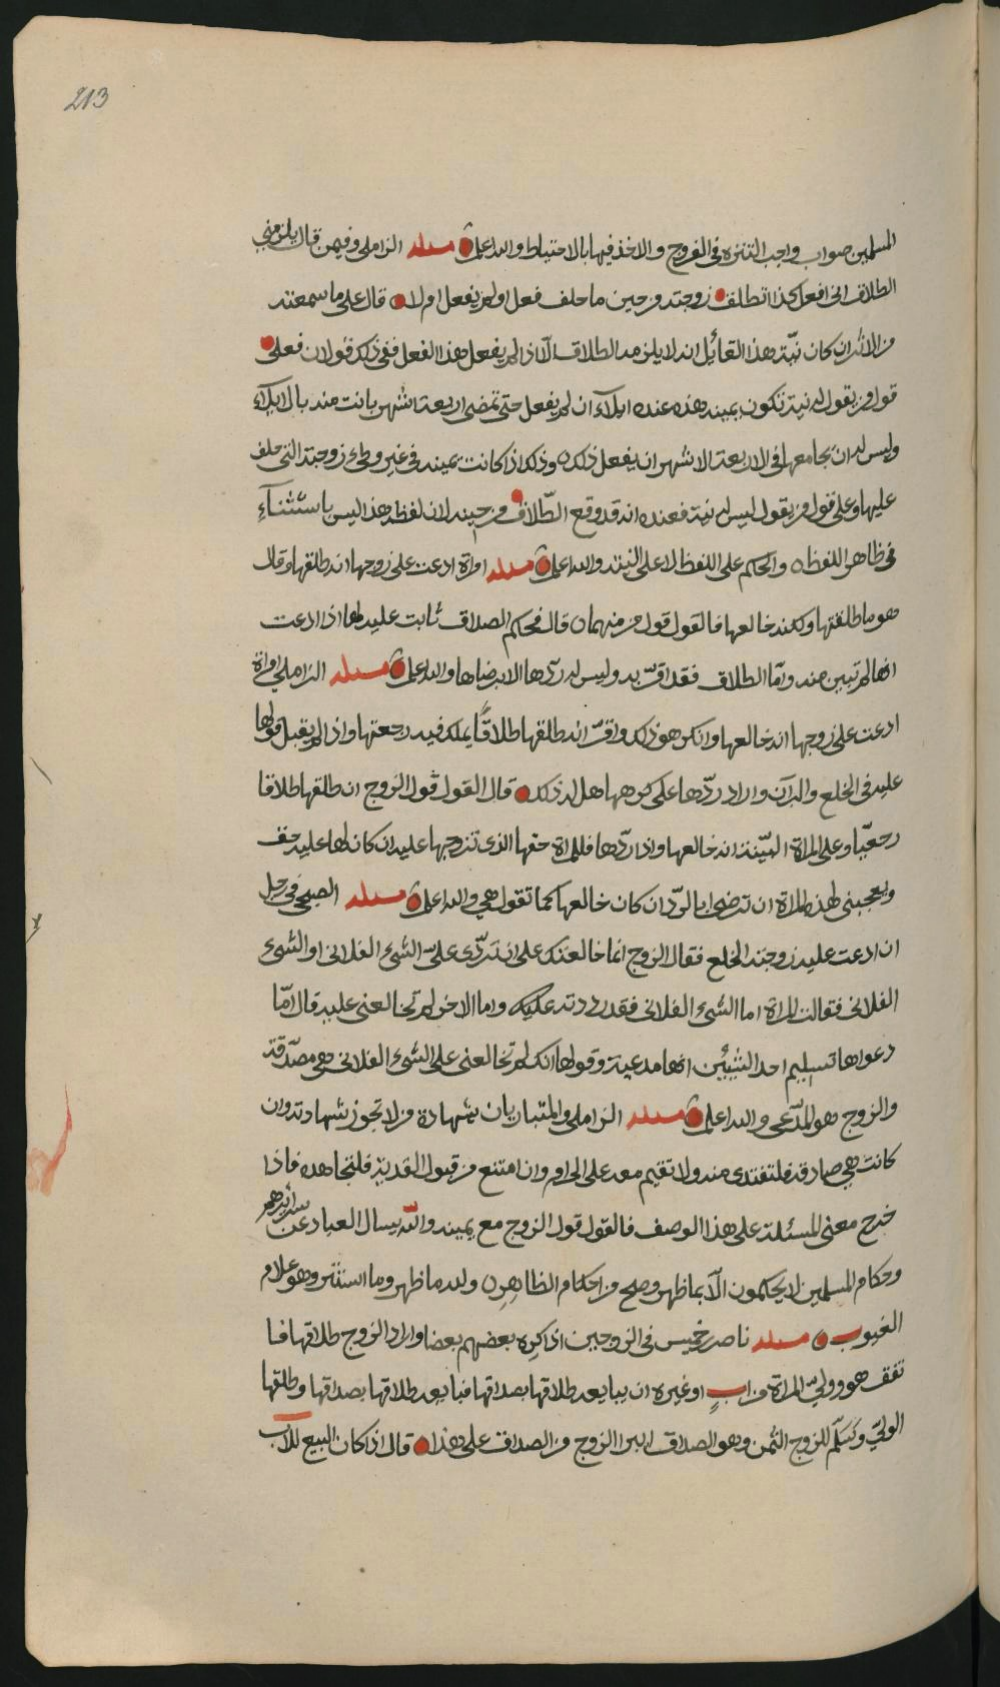 213
المسلمين صواب واجب التنزه فى الفروج والاخذ فيها بالاحتياط والله اعلم مسئلة الزاملى وفيمن قال يلزمنى
الطلاق انى افعل كذا اتطلق زوجته من حين ما حلف فعل او لم يفعل ام لا قال على ما سمعته
من الاثر ان كان نيّة هذا القائل انه لا يلزمه الطلاق الّا اذا لم يفعل هذا الفعل ففى ذلك قولان فعلى
قول من يقول له نيته تكون يمينه هذه عنده ايلآء ان لم يفعل حتى تمضى اربعة اشهر بانت منه بالايلآء
وليس له ان يجامعها فى الاربعة الاشهر ان يفعل ذلك وذلك اذا كانت يمينه فى غير وطئ زوجته التى حلف
عليها وعلى قول من يقول ليس له نية فعنده انه قد وقع الطّلاق من حينه لان لفظه هذا ليس باستثنآء
فى ظاهر اللفظ والحكم على اللفظ لا على النية والله اعلم مسئلة امراة ادعت على زوجها انه طلقها وقال
هو ما طلقتها ولكنه خالعها فالقول قول من منهما قال فحكم الصداق ثابت عليه لها اذا ادعت
انها لم تبين منه وامّا الطلاق فقد اقرّ به وليس له ردّها الا برضاها والله اعلم مسئلة الزاملى امراة
ادعت على زوجها انه خالعها وانكر هو ذلك واقرّ انه طلقها طلاقًا يملك فيه رجعتها واذا لم يقبل قولها
عليه فى الخلع والبرآن واراد ردّها على كرهها هل له ذلك قال القول قول الزوج ان طلقها طلاقا
رجعيّا وعلى المراة البيّنة انه خالعها واذا ردّها فللمراة حقها الذى تزوجها عليه ان كان لها عليه حق
ويعجبنى لهذه المراة ان ترضى بالردّ ان كان خالعها كما تقول هى والله اعلم مسئلة الصبحى فى رجل
ان ادعت عليه زوجته الخلع فقال الزوج انما خالعتك على ان تردّى علىّ الشىء الفلانى او الشىء
الفلانى فقالت المراة اما الشىء الفلانى فقد رددته عليك واما الاخر لم تخالعنى عليه قال امّا
دعواها تسليم احد الشيئين انها مدعية وقولها انك لم تخالعنى على الشىء الفلانى هى مصدّقة
والزوج هو المدّعى والله اعلم مسئلة الزاملى والمتباريان شهادة من لا تجوز شهادته وان
كانت هى صادقة فلتفتدى منه ولا تقيم معه على الحرام وان امتنع من قبول الفدية فلتجاهده فاذا
خرج معنى المسئلة على هذا الوصف فالقول قول الزوج مع يمينه والله يسال العباد عن سرائرهم
وحكام المسلمين لا يحكمون الّا بما ظهر وصح من احكام الظاهر ولله ما ظهر وما استتر وهو علام
الغيوب مسئلة ناصر بن خميس فى الزوجين اذا كره بعضهم بعضا واراد الزوج طلاقها فا
تفق هو ووليّ المراة من ابٍ او غيره ان يبايعه طلاقها بصداقها فبايعه طلاقها بصداقها وطلقها
الولىّ وسَلّم للزوج الثمن وهو الصداق ابرا الزوج من الصداق على هذا قال اذا كان البيع للاب